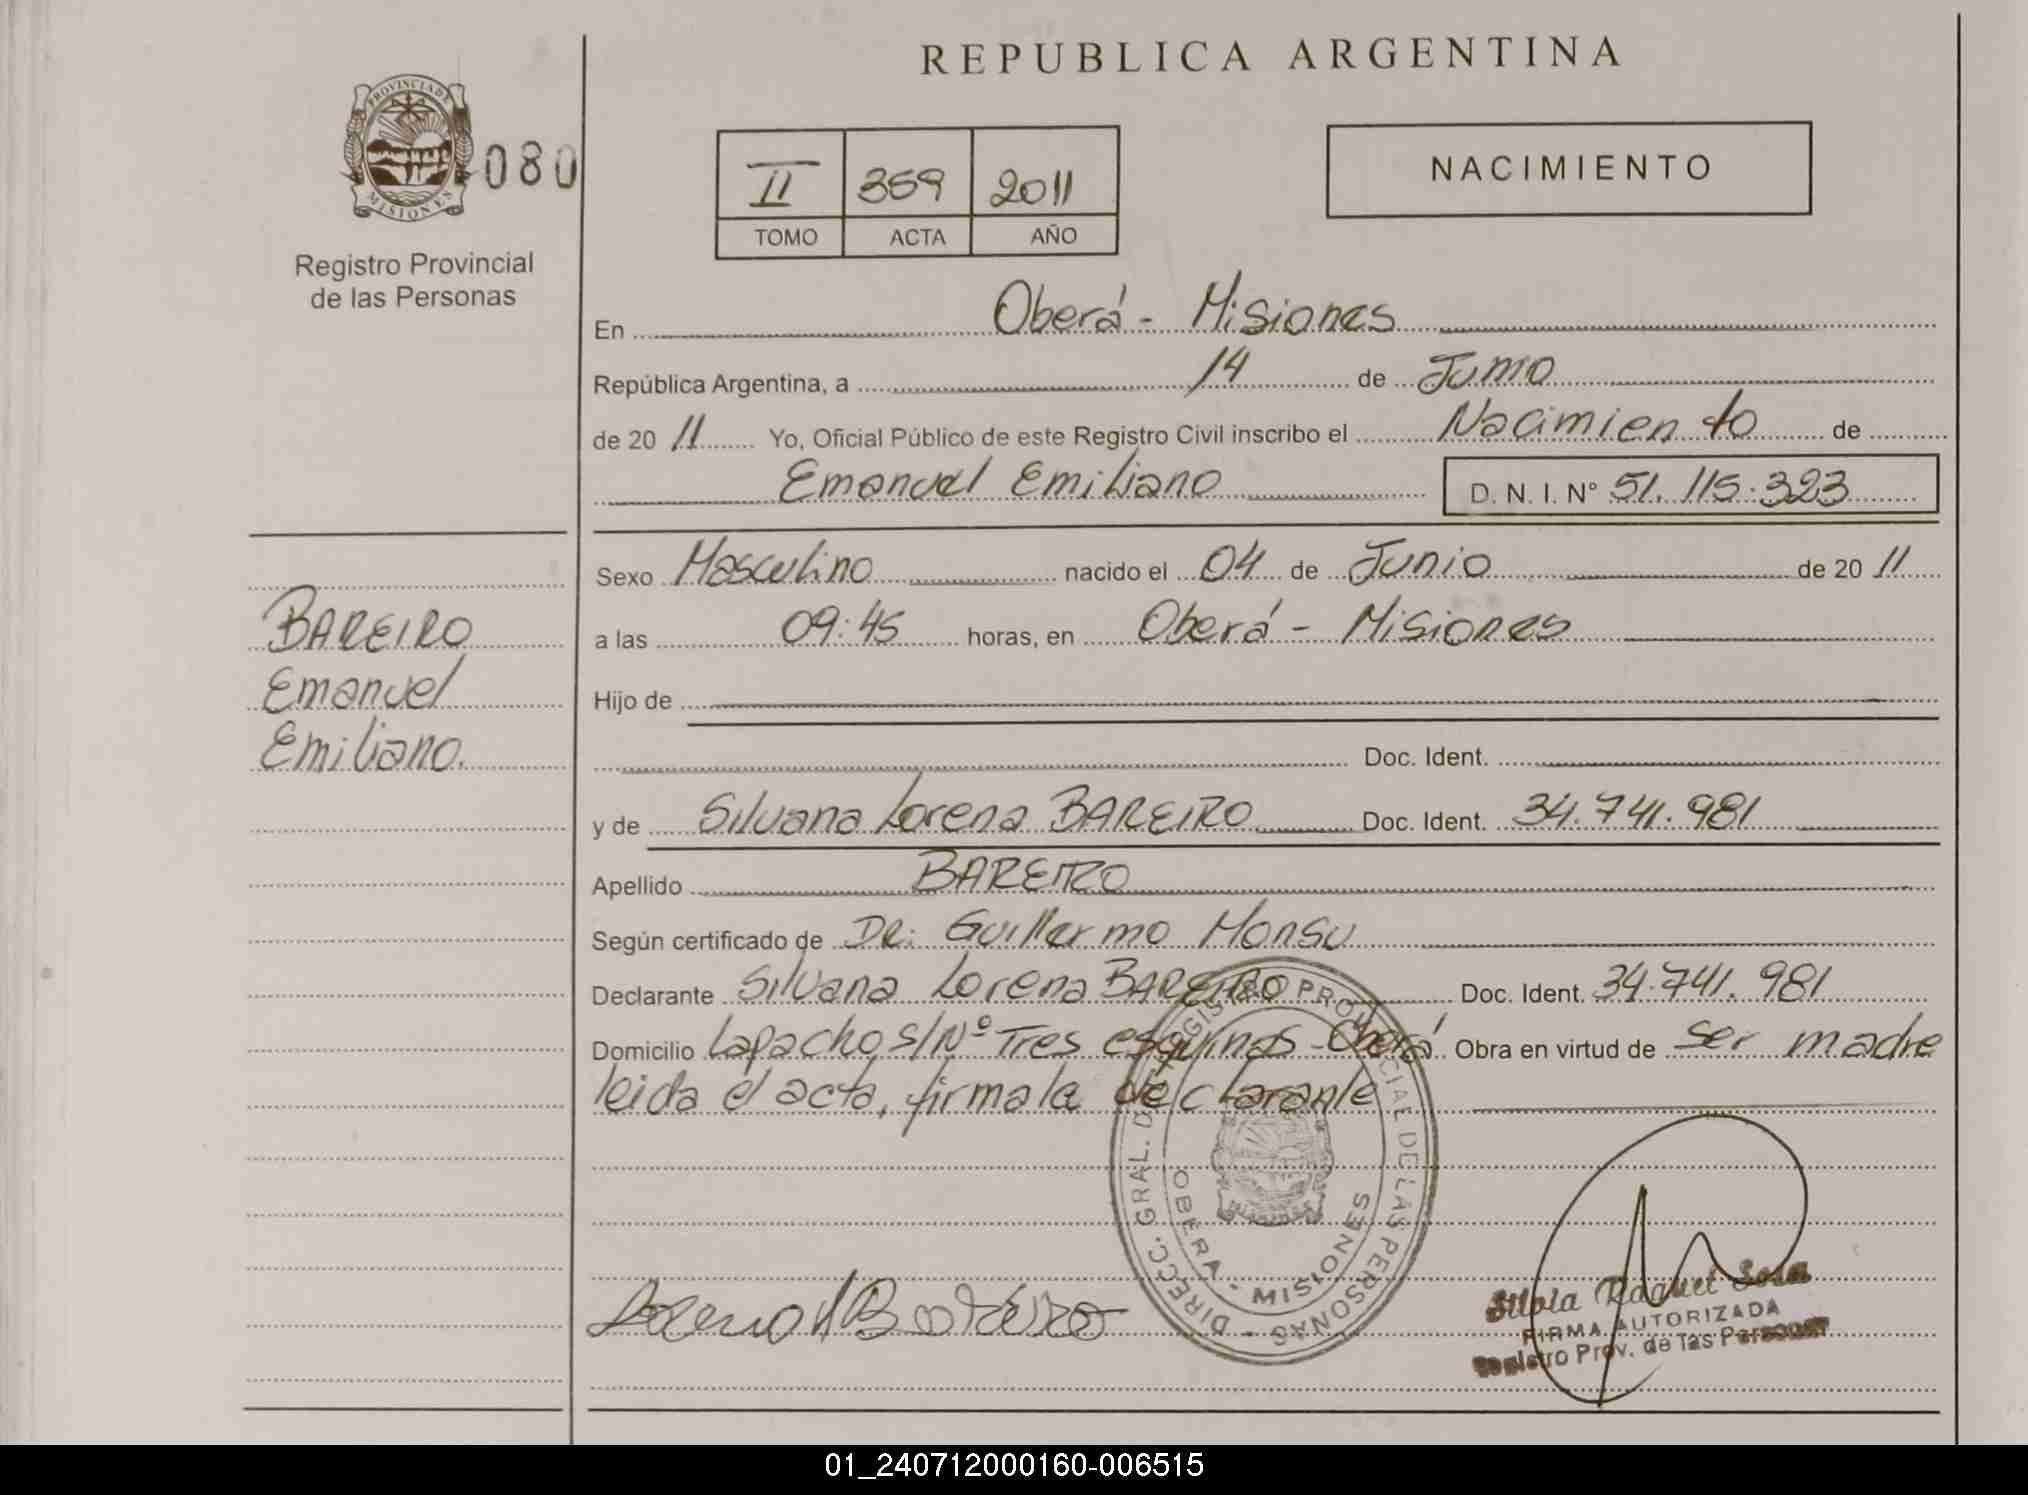 REPUBLICA ARGENTINA
PROVINCIA DE
MISIONES
080
Registro Provincial
de las Personas
II 359 2011
TOMO ACTA AÑO
NACIMIENTO
En Oberá - Misiones
República Argentina, a 14 de Junio
de 20 11 Yo, Oficial Público de este Registro Civil inscribo el Nacimiento de
Emanuel Emiliano D. N. I. N° 51.115.323
BAREIRO
Emanuel
Emiliano.
Sexo Masculino nacido el 04 de Junio de 20 11
a las 09:45 horas, en Oberá - Misiones
Hijo de
Doc. Ident.
y de Silvana Lorena BAREIRO Doc. Ident. 34.741.981
Apellido BAREIRO
Según certificado de DR: Guillermo Monsu
Declarante Silvana Lorena BAREIRO Doc. Ident. 34.741.981
Domicilio Lapacho s/Nº Tres esquinas - Oberá Obra en virtud de ser madre
leida el acta, firma la declarante
DIRECC. GRAL. DEL REGISTRO PROVINCIAL DE LAS PERSONAS
OBERA - MISIONES
Silvia Raquel Sosa
FIRMA AUTORIZADA
Registro Prov. de las Personas
01_240712000160-006515